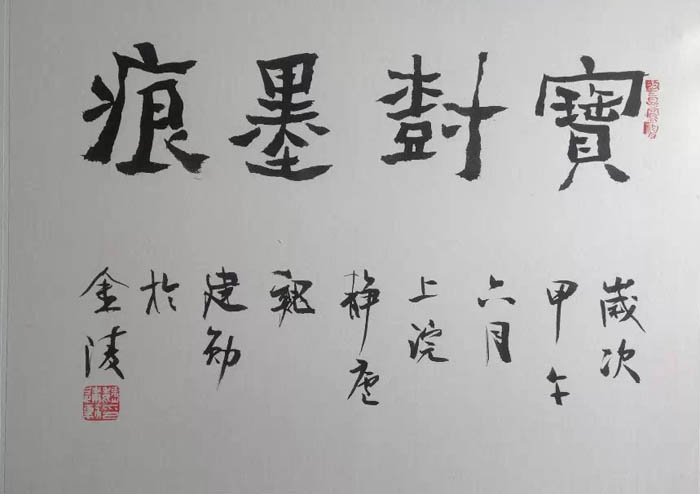 寶樹墨痕
歲次
甲午
六月
上浣
静庵
魏
建
於
金陵